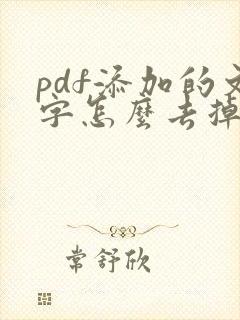 pdf添加的文
字怎麼去掉
常舒欣